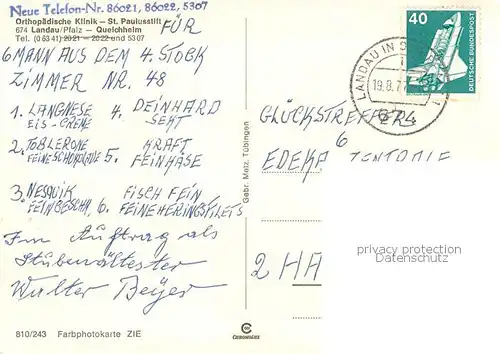 Neue Telefon-Nr. 86021, 86022, 5307
Orthopädische Klinik – St. Paulusstift
674 Landau/Pfalz – Queichheim
Tel. (0 63 41) 2021 – 2022 und 5307
FÜR
6 MANN AUS DEM 4. STOCK
ZIMMER NR. 48
1. LANGNESE
EIS-CREME
4. DEINHARD
SEKT
2. TOBLERONE
FEINE SCHOKOLADE
5. KRAFT
FEINKÄSE
3. NESQUIK
FEINGESCHM.
6. FISCH FEIN
FEINE HERINGSFILETS
Im Auftrag als
Stubenältester
Walter Beyer
810/243 Farbphotokarte ZIE
Gebr. Metz, Tübingen
CHROMOLUX
40
DEUTSCHE BUNDESPOST
LANDAU IN D
19.8.77
GLÜCKSTREFFER
6
EDEKA
2 HA
privacy protection
Datenschutz